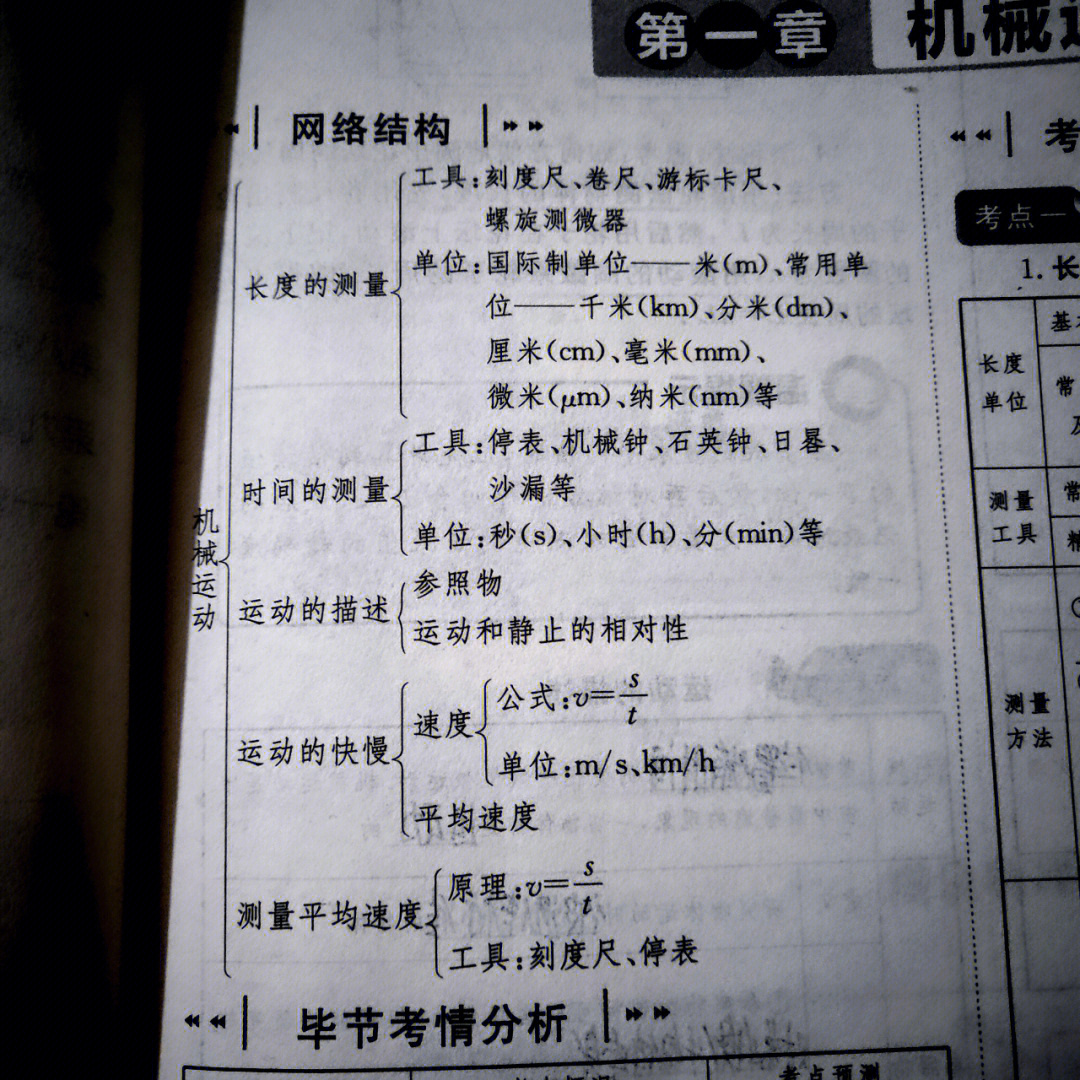 第一章 机械
网络结构
机械运动
长度的测量
工具:刻度尺、卷尺、游标卡尺、
螺旋测微器
单位:国际制单位——米(m)、常用单
位——千米(km)、分米(dm)、
厘米(cm)、毫米(mm)、
微米(μm)、纳米(nm)等
时间的测量
工具:停表、机械钟、石英钟、日晷、
沙漏等
单位:秒(s)、小时(h)、分(min)等
运动的描述
参照物
运动和静止的相对性
运动的快慢
速度
公式:v=s/t
单位:m/s、km/h
平均速度
测量平均速度
原理:v=s/t
工具:刻度尺、停表
毕节考情分析
考点预测
考
考点一
1. 长
长度
单位
基
常
测量
工具
常
精
测量
方法